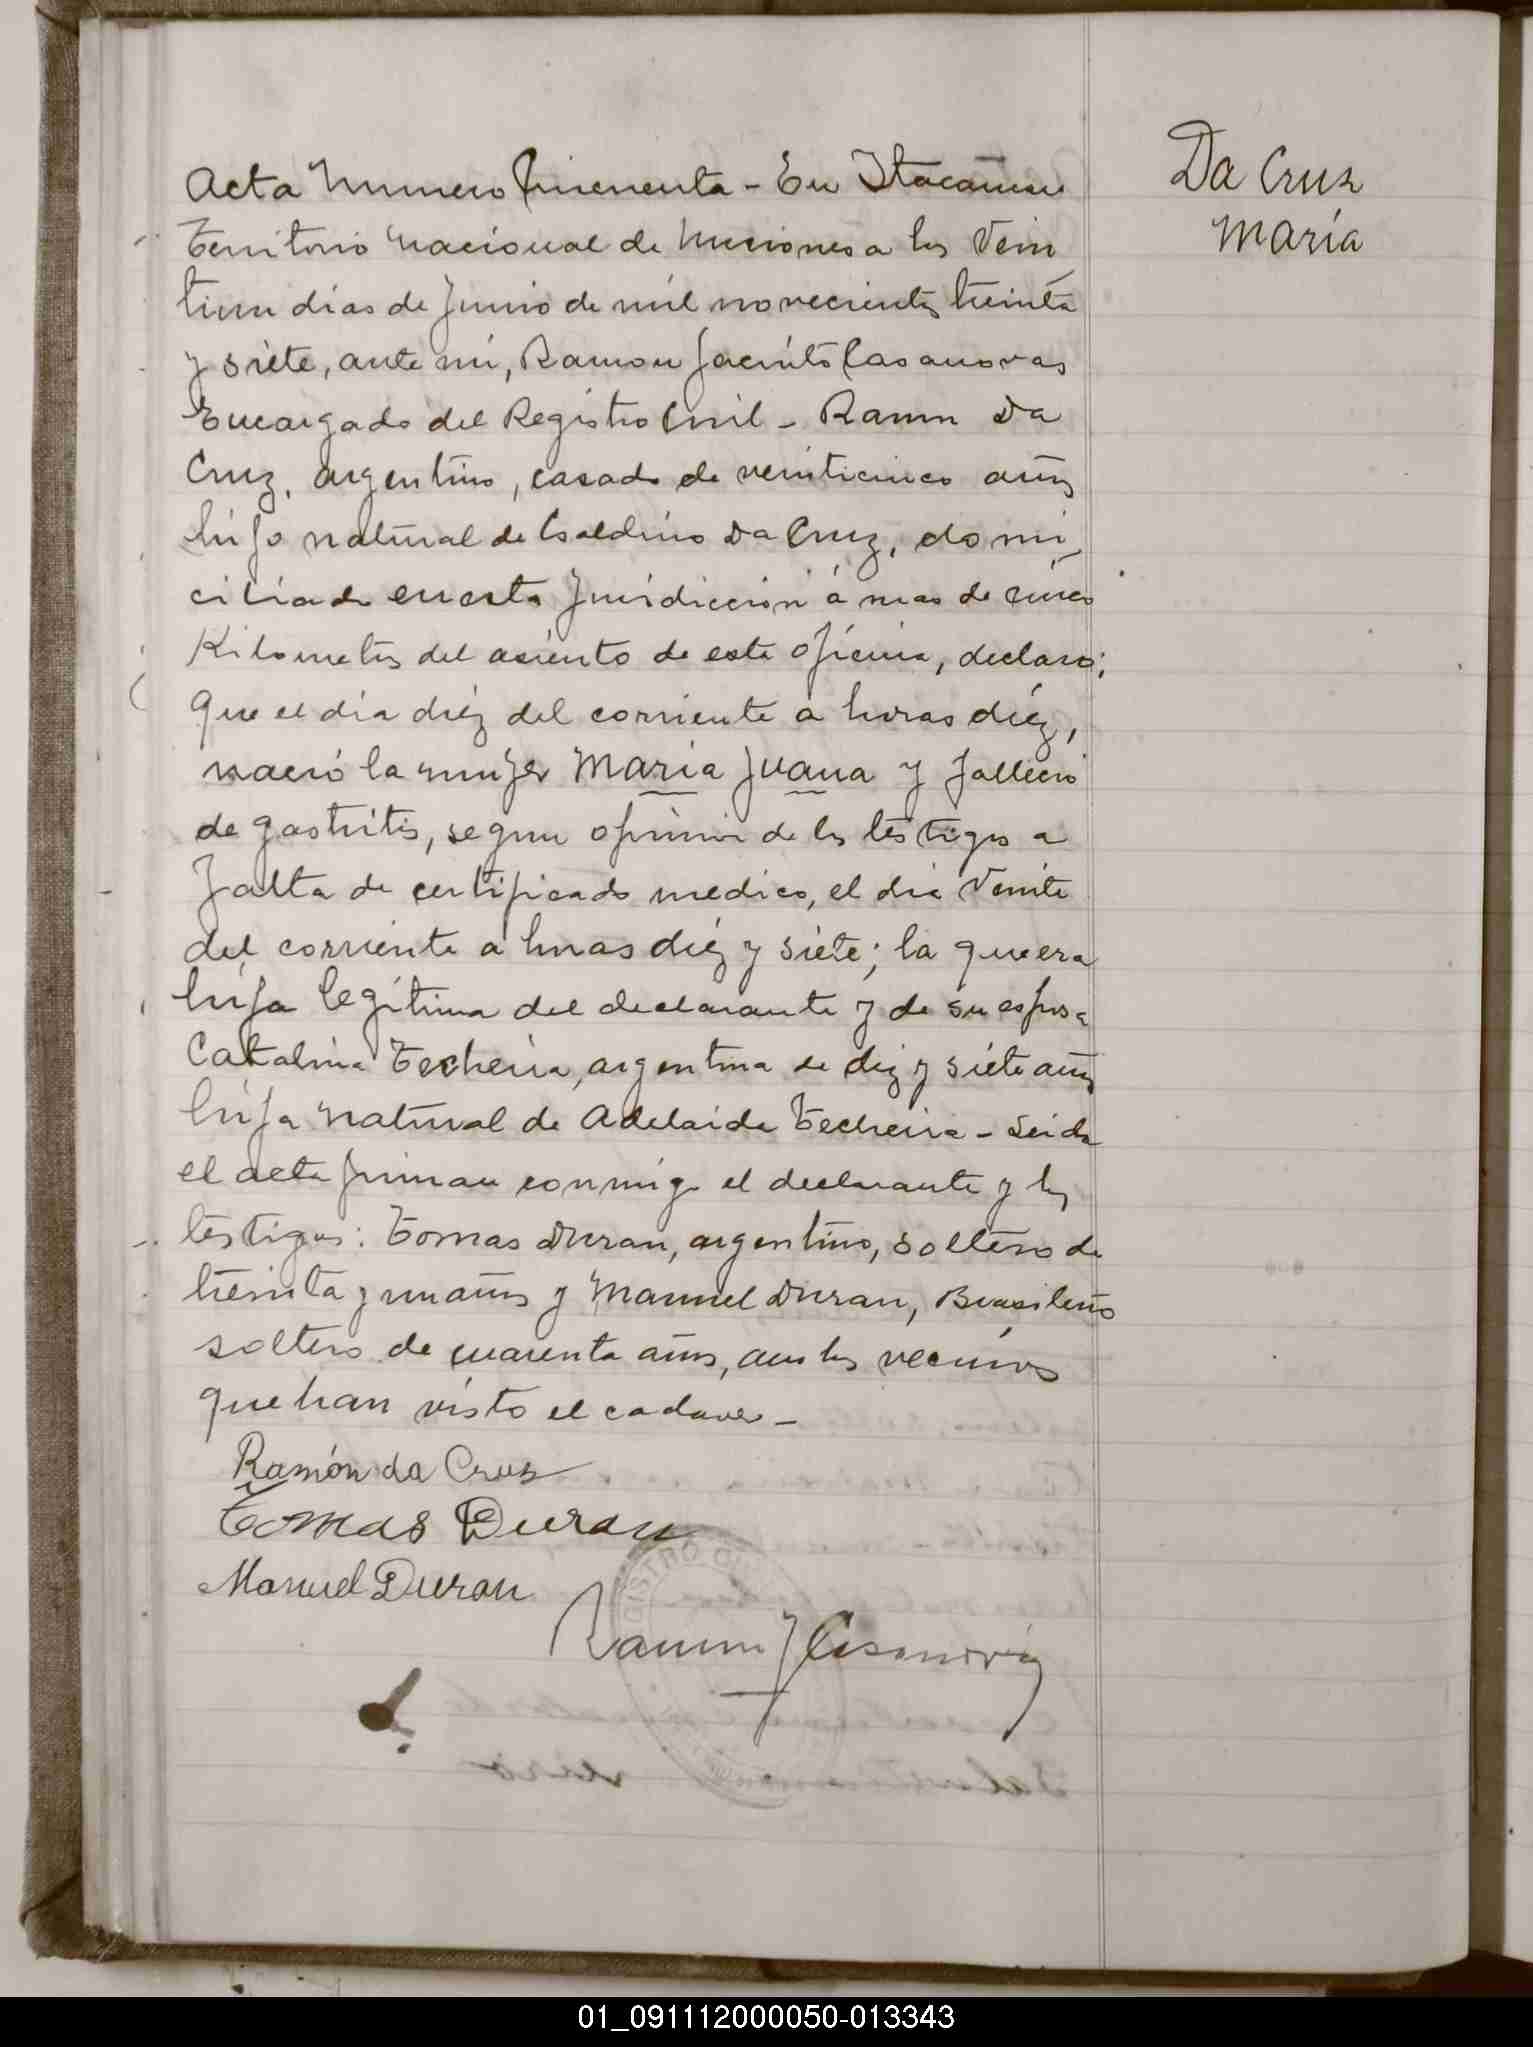 Acta Numero Cincuenta - En Itacaruaré
Territorio Nacional de Misiones a los Vein
tiun días de Junio de mil novecientos treinta
y siete, ante mí, Ramon Jacinto Casanovas
Encargado del Registro Civil - Ramon Da
Cruz, argentino, casado de veinticinco años
hijo natural de Galdino Da Cruz, domi
ciliado en esta Jurisdiccion á mas de cinco
Kilometros del asiento de esta oficina, declaro;
Que el día diéz del corriente a horas diéz,
nació la mujer María Juana y falleció
de gastritis, segun opinion de los testigos a
falta de certificado medico, el dia Veinte
del corriente a horas diéz y siete; la que era
hija legítima del declarante y de su esposa
Catalina Techeira, argentina de diez y siete años
hija natural de Adelaida Techeira - Leida
el acta firman conmigo el declarante y los
testigos: Tomas Duran, argentino, soltero de
treinta y un años y Manuel Duran, Brasileño
soltero de cuarenta años, ambos vecinos
que han visto el cadaver -
Ramón da Cruz
Tomas Duran
Manuel Duran
Ramon J Casanovas
Da Cruz
María
01_091112000050-013343